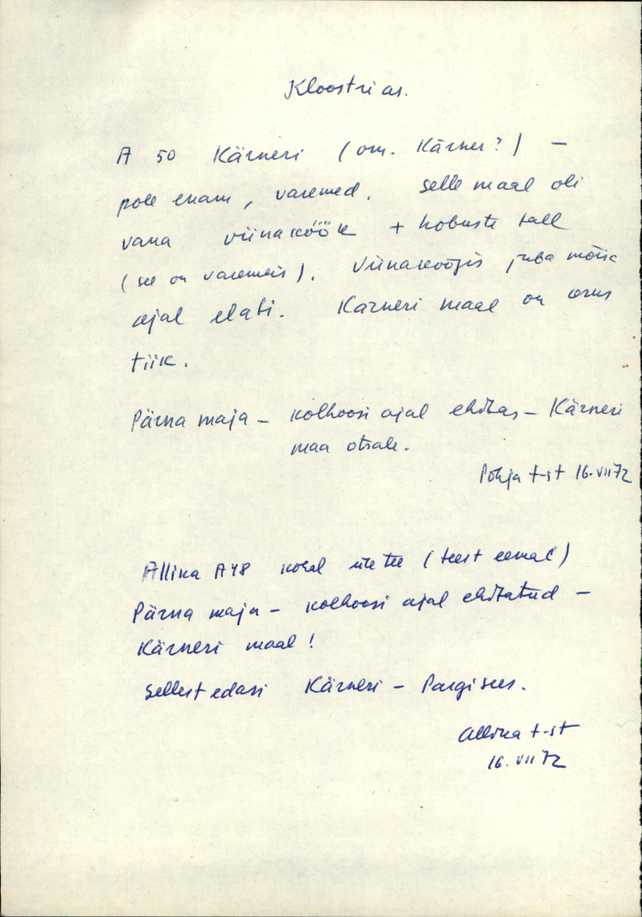 Kloostri as.
A 50 Kärneri (om. Kärner?) –
pole enam, varemed. Selle maal oli
vana viinaköök + hobuste tall
(see on varemeis). Viinaköögis juba mõisa
ajal elati. Kärneri maal on
tiik.
Pärna maja – kolhoosi ajal ehitas – Kärneri
maa otsale.
Põhja t-st 16.VII 72
Allika A48 kohal üle tee (teest eemal)
Pärna maja – kolhoosi ajal ehitatud –
Kärneri maal!
Sellest edasi Kärneri – Pargi sees.
Allika t-st
16.VII 72